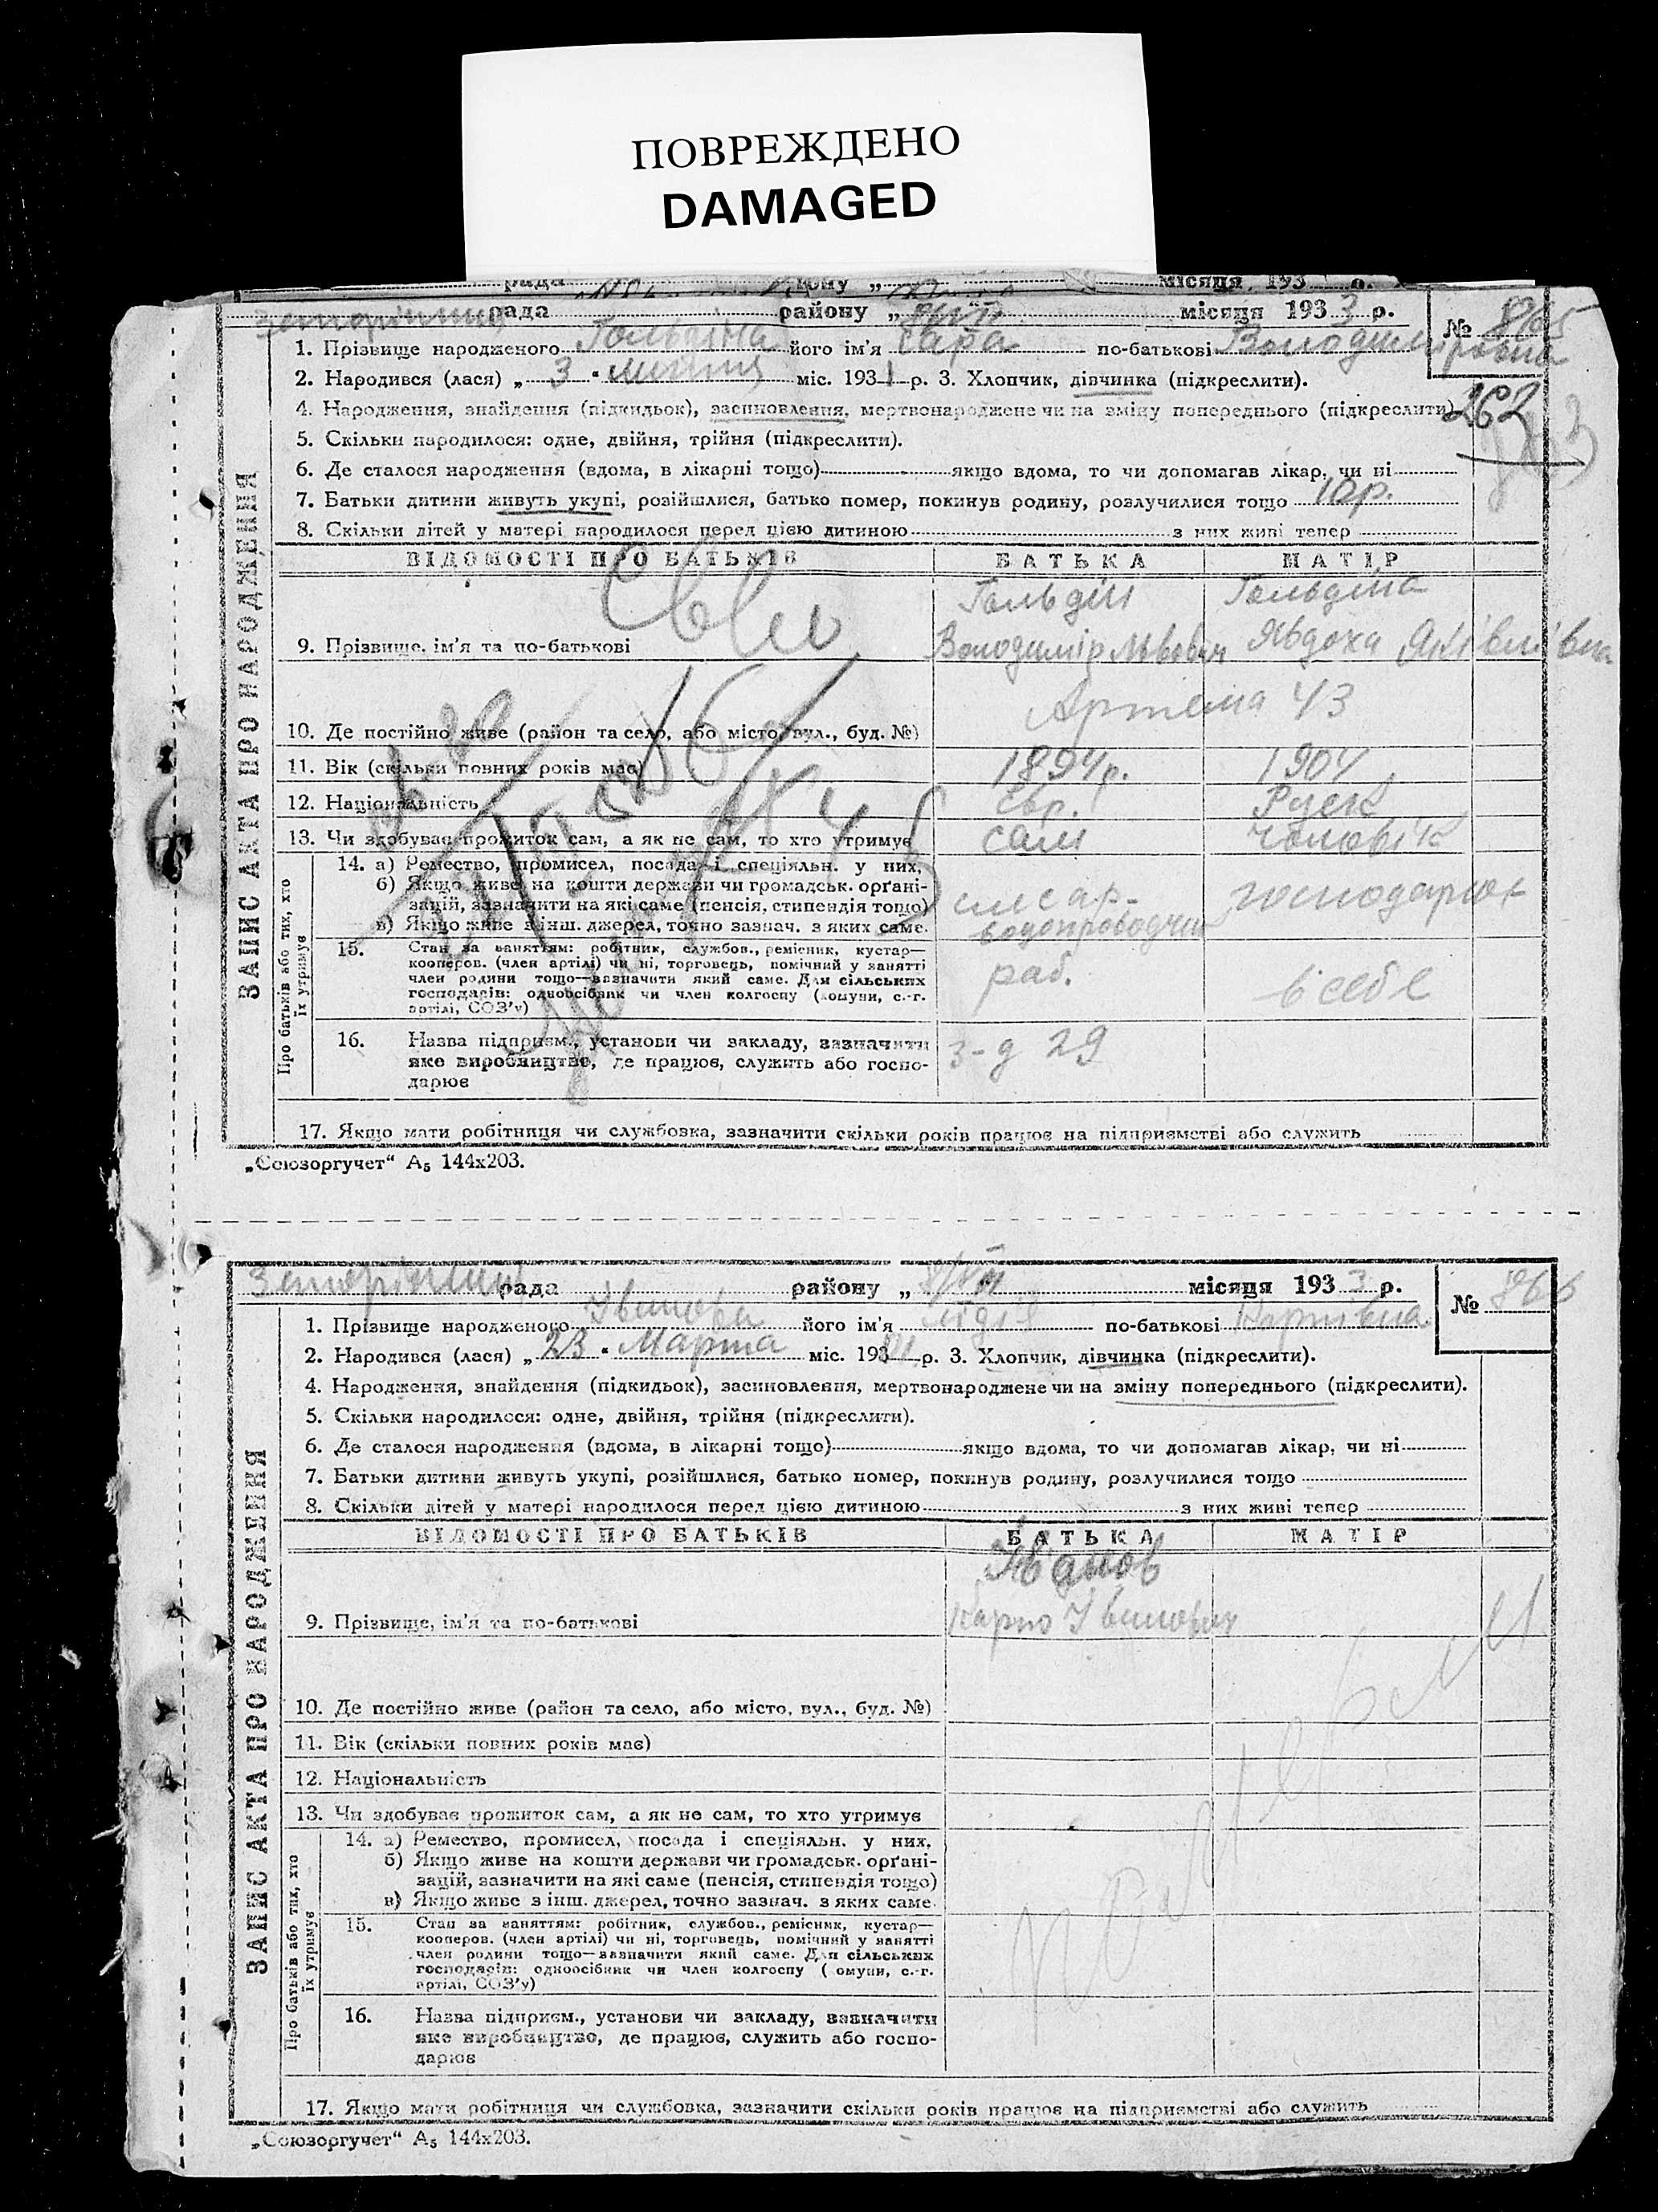 ПОВРЕЖДЕНО
DAMAGED
рада району „ місяця 193 р.
рада району „ місяця 193 3 р.
№ 865
1. Прізвище народженого Гольдіна його ім'я Сара по-батькові Володимировна
2. Народився (лася) „ 3 “ міс. 1931 р. 3. Хлопчик, дівчинка (підкреслити).
4. Народження, знайдення (підкидьок), засиновлення, мертвонароджене чи на зміну попереднього (підкреслити)
262
5. Скільки народилося: одне, двійня, трійня (підкреслити).
6. Де сталося народження (вдома, в лікарні тощо) якщо вдома, то чи допомагав лікар, чи ні
7. Батьки дитини живуть укупі, розійшлися, батько помер, покинув родину, розлучилися тощо 10 р.
8. Скільки дітей у матері народилося перед цією дитиною з них живі тепер
ЗАПИС АКТА ПРО НАРОДЖЕННЯ
ВІДОМОСТІ ПРО БАТЬКІВ БАТЬКА МАТІР
Гольдін Гольдіна
9. Прізвище, ім'я та по-батькові Володимір Львович Явдоха
Артема 43
10. Де постійно живе (район та село, або місто, вул., буд. №)
11. Вік (скільки повних років має) 1894 р. 1904
12. Національність Євр. Руск
13. Чи здобуває прожиток сам, а як не сам, то хто утримує сам чоловік
Про батьків або тих, хто їх утримує
14. а) Ремество, промисел, посада і спеціяльн. у них.
б) Якщо живе на кошти держави чи громадськ. орґані-
зацій, зазначити на які саме (пенсія, стипендія тощо) слесар- господарює
в) Якщо живе з інш. джерел, точно зазнач. з яких саме. водопроводчик
15. Стан за заняттям: робітник, службов., ремісник, кустар—
кооперов. (член артілі) чи ні, торговець, помічний у занятті
член родини тощо—зазначити який саме. Для сільських
господарів: одноосібник чи член колгоспу (комуни, с.-г.
артілі, СОЗ'у)
раб. в себе
16. Назва підприєм., установи чи закладу, зазначити
яке виробництво, де працює, служить або госпо-
дарює
з-д 29
17. Якщо мати робітниця чи службовка, зазначити скільки років працює на підприємстві або служить
„Союзоргучет“ А5 144х203.
рада району „ місяця 193 3 р.
№ 866
1. Прізвище народженого його ім'я Лідія по-батькові Карпівна
2. Народився (лася) „ 23 “ Марта міс. 193 р. 3. Хлопчик, дівчинка (підкреслити).
4. Народження, знайдення (підкидьок), засиновлення, мертвонароджене чи на зміну попереднього (підкреслити).
5. Скільки народилося: одне, двійня, трійня (підкреслити).
6. Де сталося народження (вдома, в лікарні тощо) якщо вдома, то чи допомагав лікар, чи ні
7. Батьки дитини живуть укупі, розійшлися, батько помер, покинув родину, розлучилися тощо
8. Скільки дітей у матері народилося перед цією дитиною з них живі тепер
ЗАПИС АКТА ПРО НАРОДЖЕННЯ
ВІДОМОСТІ ПРО БАТЬКІВ БАТЬКА МАТІР
9. Прізвище, ім'я та по-батькові Карпо
10. Де постійно живе (район та село, або місто, вул., буд. №)
11. Вік (скільки повних років має)
12. Національність
13. Чи здобуває прожиток сам, а як не сам, то хто утримує
Про батьків або тих, хто їх утримує
14. а) Ремество, промисел, посада і спеціяльн. у них.
б) Якщо живе на кошти держави чи громадськ. орґані-
зацій, зазначити на які саме (пенсія, стипендія тощо)
в) Якщо живе з інш. джерел, точно зазнач. з яких саме.
15. Стан за заняттям: робітник, службов., ремісник, кустар—
кооперов. (член артілі) чи ні, торговець, помічний у занятті
член родини тощо—зазначити який саме. Для сільських
господарів: одноосібник чи член колгоспу ( омуни, с.-г.
артілі, СОЗ'у)
16. Назва підприєм., установи чи закладу, зазначити
яке виробництво, де працює, служить або госпо-
дарює
17. Якщо мати робітниця чи службовка, зазначити скільки років працює на підприємстві або служить
„Союзоргучет“ А5 144х203.